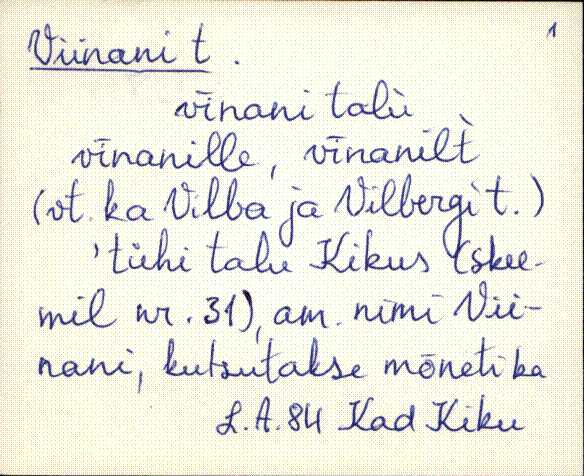 1
Viinani t.
vīnani talù
vīnanille, vīnanilt̀
(vt. ka Vilba ja Vilbergi t.)
'tühi talu Kikus (skee-
mil nr. 31), am. nimi Vii-
nani, kutsutakse mōneti ka
L.A. 84 Kad Kiku